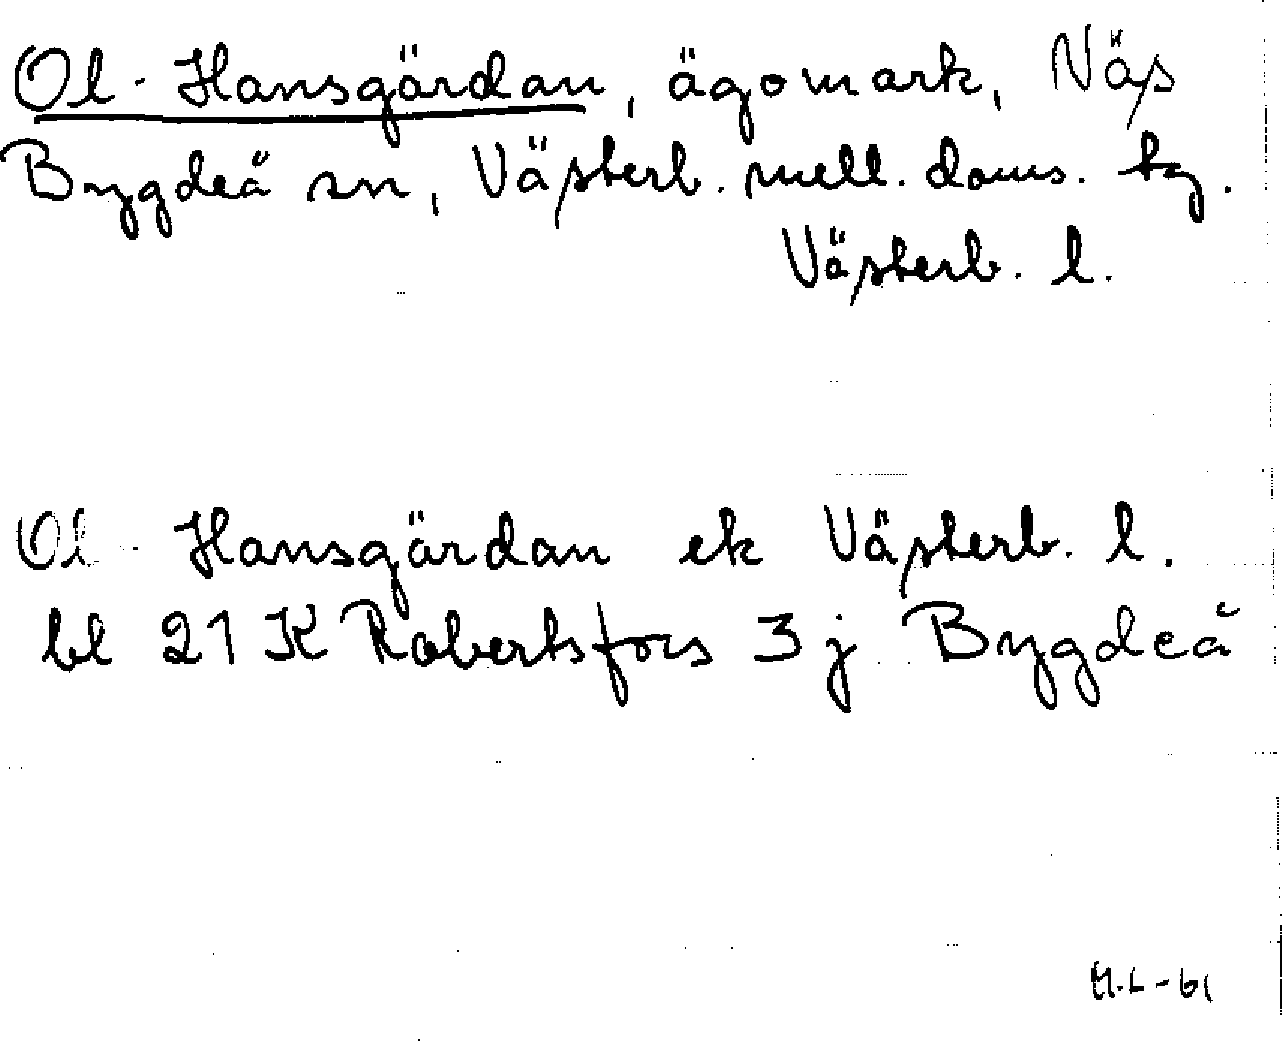 Ol-Hansgärdan, ägomark, Näs
Bygdeå sn, Västerb. mell. doms. tg.
Västerb. l.
Ol-Hansgärdan ek Västerb. l.
bl 21 K Robertsfors 3 j Bygdeå
H.L-61